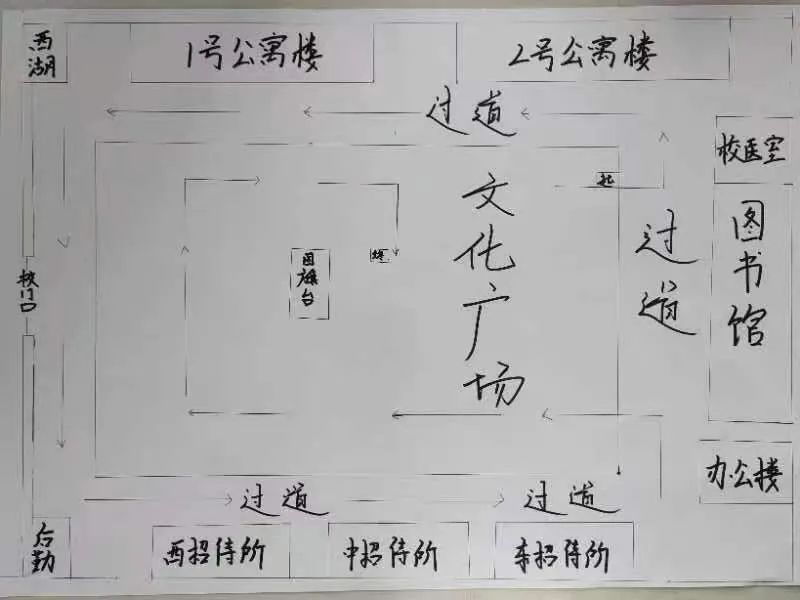 西湖
1号公寓楼
2号公寓楼
过道
校医室
起
文化广场
过道
图书馆
国旗台
终
校门口
办公楼
过道
过道
后勤
西招待所
中招待所
东招待所